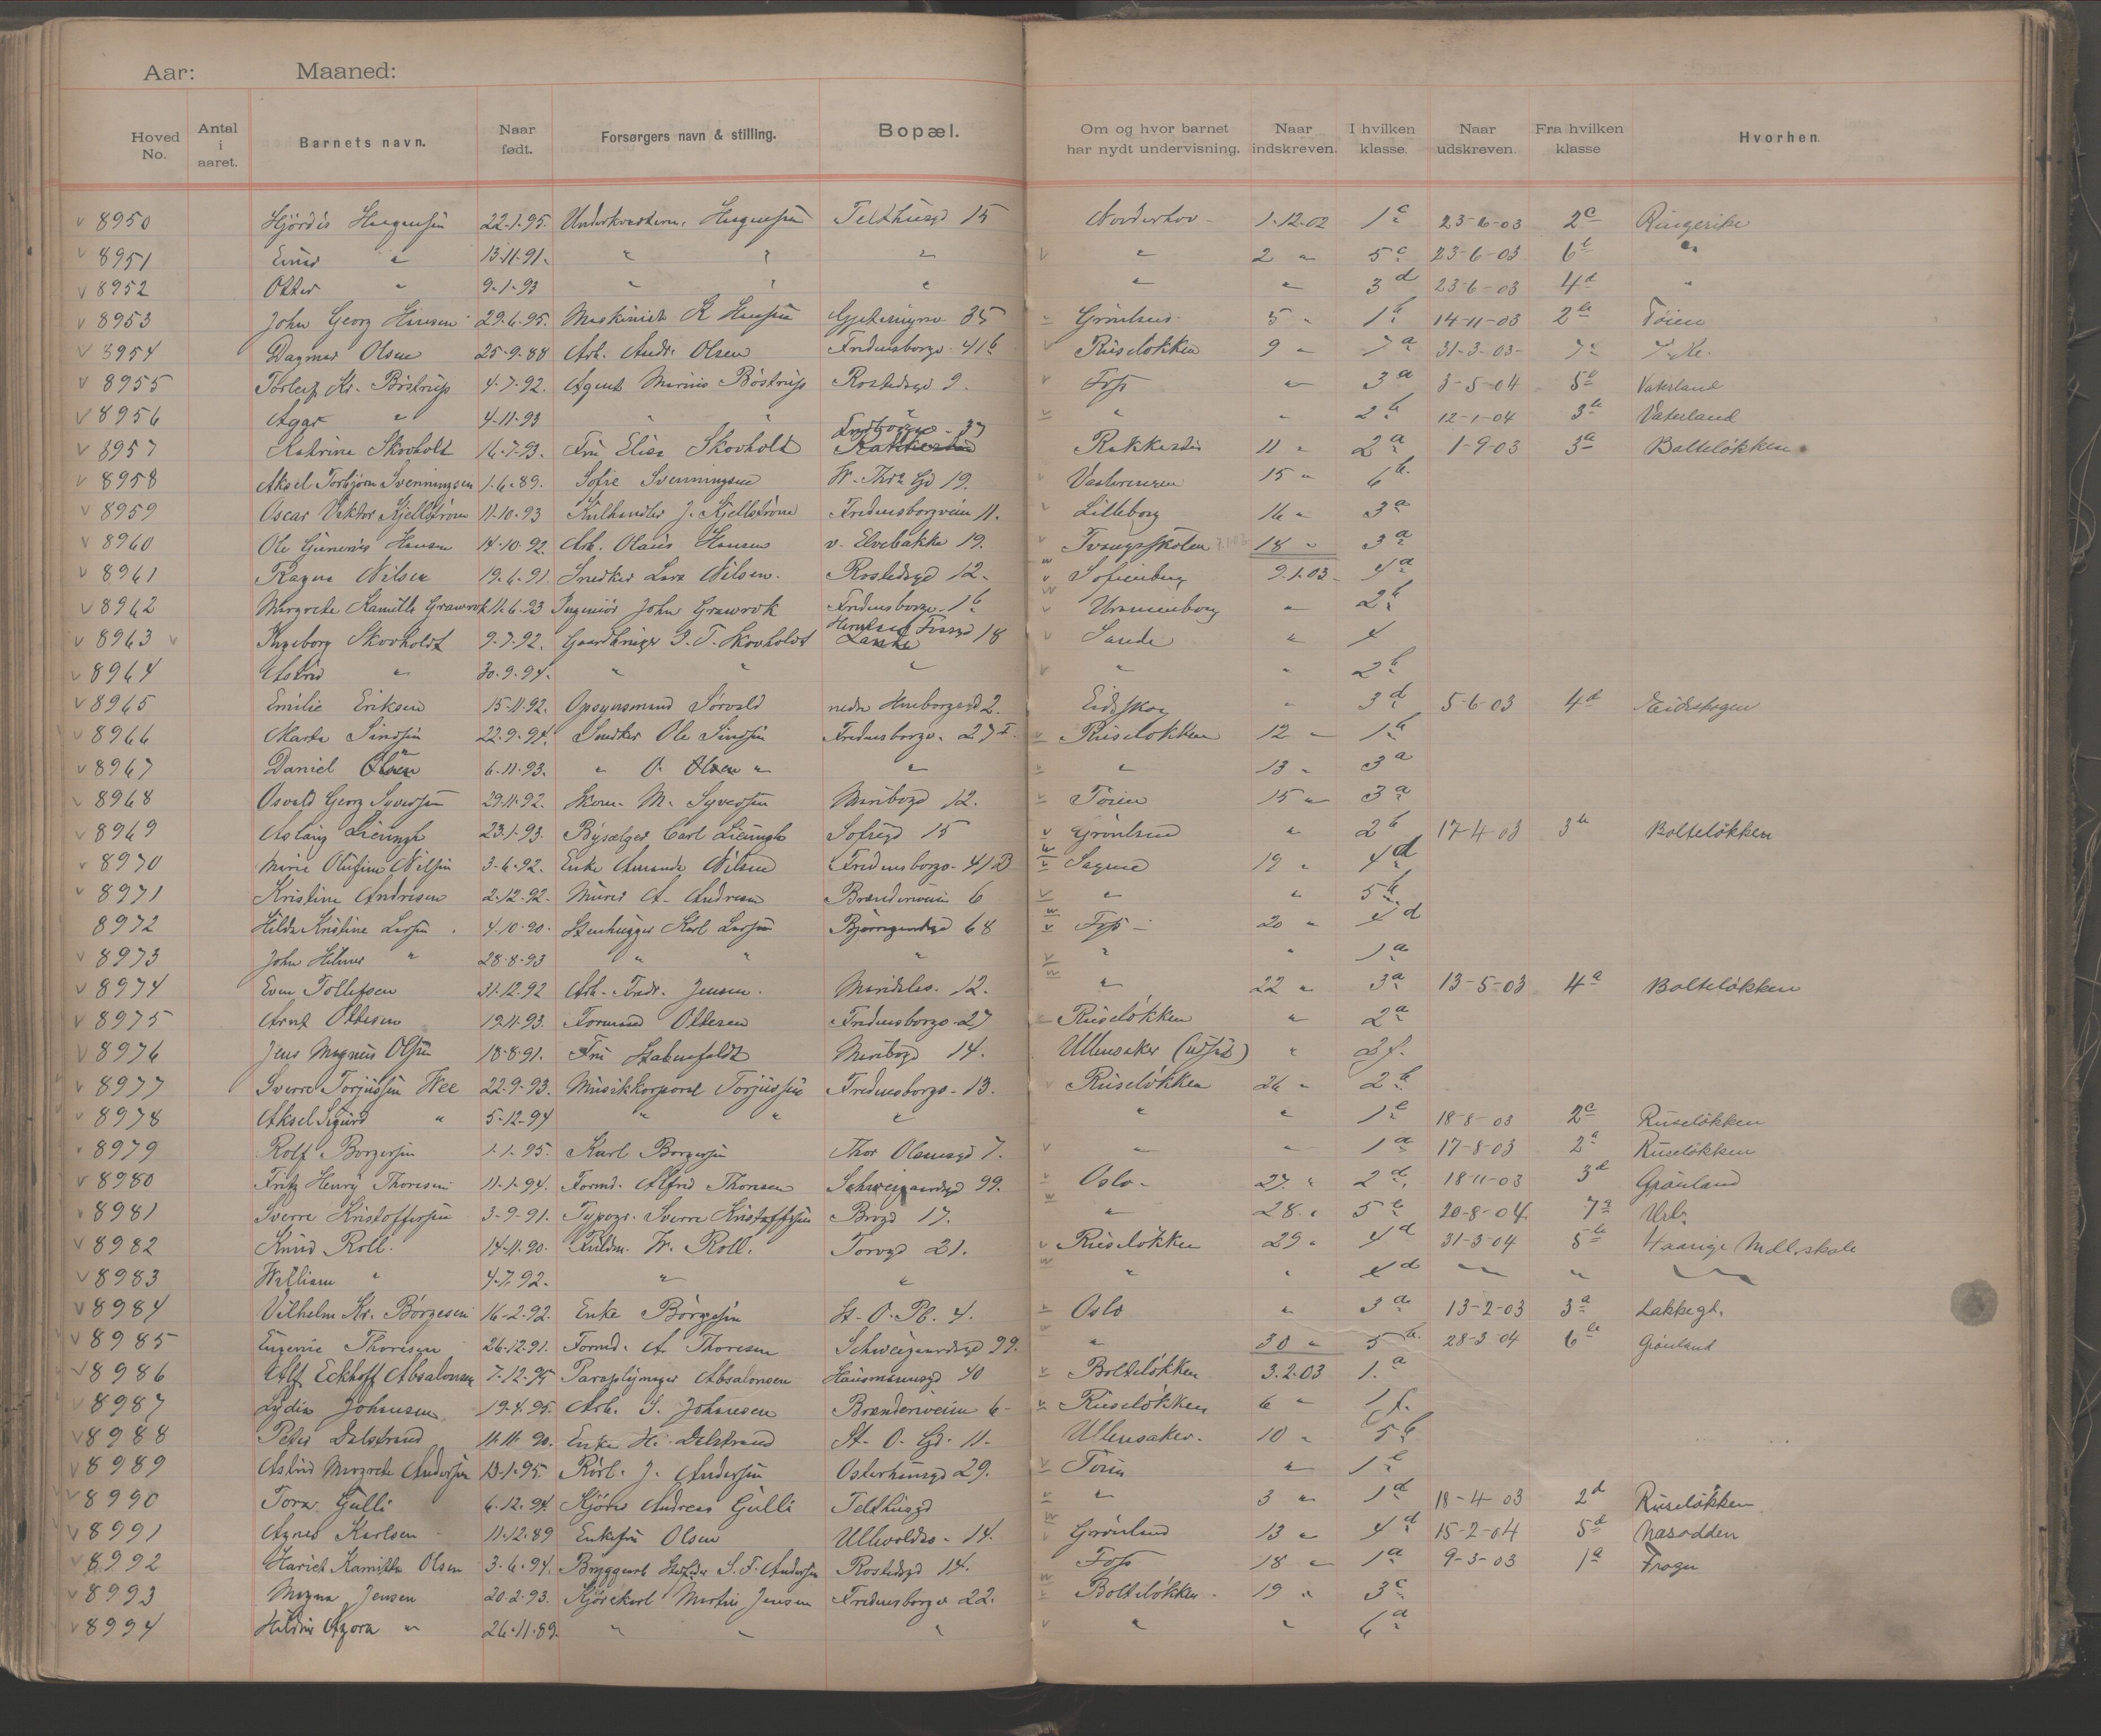 Aar: Maaned:
Hoved No. Antal i aaret. Barnets navn. Naar født. Forsørgers navn & stilling. Bopæl. Om og hvor barnet har nydt undervisning. Naar indskreven. I hvilken klasse. Naar udskreven. Fra hvilken klasse Hvorhen.
8950 Hjördis Haugensen 22-1-95. Haugensen Telthusgd 15 Norderhov - 1-12-02 1c 23-6-03 2c Ringerike
8951 Einar " 13-11-91. " " " " 2 " 5c 23-6-03 6b "
8952 Ottar " 9-1-93 " " " " " 3d 23-6-03 4d "
8953 John Georg Hansen 29-6-95. Maskinist K Hansen 35 Grönland 5 " 1b 14-11-03 2b Töien
8954 Dagmar Olsen 25-9-88 Arb. Andr. Olsen Fredensborgv. 41b Ruselökken 9 " 7a 31-3-03-
8955 Torleif Kr. Böstrup 4-7-92. Agent Marius Böstrup Rostedsgd 9. Foss " 3a 3-5-04 5b Vaterland
8956 Aage " 4-11-93 " " " " " 2b 12-1-04 3b Vaterland
8957 Katrine Skovholt 16-7-93. Fru Elise Skovholt 37 Bakkestu Rakkestu 11 " 2a 1-9-03 3a Bolteløkken
8958 Aksel Torbjørn Svenningsen 1-6-89. Sofie Svenningsen W. Thrs Gd 19. 15 " 6b
8959 Oscar Viktor Kjellström 11-10-93 Kulhandler J. Kjellström Fredensborgveien 11. Lilleborg 16 " 3a
8960 Ole Gunerius Hansen 14-10-92. Arb. Olaus Hansen v. Elvebakke 19. Tvangsskolen 18 " 3a
8961 Ragna Nilsen 19-6-91. Snedker Lars Nilsen. Rostedsgd 12. Sofienberg 9.1.03 4a
8962 Margrete Kamilla Grawrok 11-6-93 Ingeniör John Grawrok Fredensborgv. 1b Uranienborg " 2b
8963 Ingeborg Skovholdt 9-7-92. Gaardbruger P. T. Skovholdt 18 Sande " 4
8964 Astrid " 30-9-94. " " " " " 2b
8965 Emilie Eriksen 15-11-92. Opsynsmand Sörvald 2. Eidsskog " 3d 5-6-03 4d Eidskogen
8966 Marta Sindsen 22-9-94. Snedker Ole Sindsen Fredensborgv. 27 I Ruselökken 12 " 1b
8967 Daniel Olsen 6-11-93. " O. Olsen " " " 13 " 3a
8968 Osvald Georg Syversen 29-11-92. Skom. M. Syversen Maribogd 12. Töien 15 " 3a
8969 Aslaug Lieungh 23-1-93. Carl Lieungh Sofiegd 15 Grönland " 2b 17-4-03 3b Bolteløkken
8970 Marie Olufine Nilsen 3-6-92. Enke Amanda Nilsen Fredensborgv. 41B Sagene 19 " 4d
8971 Kristine Andresen 2-12-92. Murer A. Andresen Brænderiveien 6 " " 5b
8972 Hilda Kristine Larsen 4-10-90. Stenhugger Karl Larsen 68 Foss - 20 " 4d
8973 John Hilmer " 28-8-93 " " " " " 1a
8974 Even Tollefsen 31-12-92 Arb. Fredr. Jensen. Maridalsv. 12. " 22 " 3a 13-5-03 4a Bolteløkken
8975 Arnt Ottesen 19-11-93. Formand Ottesen Fredensborgv. 27 Ruselökken " 2a
8976 Jens Magnus Olsen 18-8-91. Fru Stabenfeldt Maribogd 14. Ullensaker (udsat) " 2f.
8977 Sverre Torjussen Wee 22-9-93. Musikkorporal Torjussen Fredensborgv. 13. Ruselökken 26 " 2b
8978 Aksel Sigurd " 5-12-94 " " " " " 1c 18-8-03 2c Ruseløkken
8979 Rolf Borgersen 1-1-95. Karl Borgersen Thor Olsensgd 7. " " 1a 17-8-03 2a Ruseløkken
8980 Fritz Henry Thoresen 11-1-94. Formd. Alfred Thoresen Schweigaardsgd 99. Oslo - 27. " 2d. 18-11-03 3d Grønland
8981 Sverre Kristoffersen 3-9-91. Typogr. Sverre Kristoffersen Brogd 17. " 28 " 5b 20-8-04. 7a
8982 Knud Roll. 14-11-90. Fuldm. W. Roll. Torvgd 21. Ruselökken 29 " 4d 31-3-04 5b Mdl. skole
8983 William " 4-7-92. " " " " 4d " " "
8984 Vilhelm Kr. Börgesen 16-2-92. Enke Börgesen St. O. Pl. 4. Oslo " 3a 13-2-03 3a Lakkegt.
8985 Eugenie Thoresen 26-12-91. Formd. A Thoresen Schweigaardsgd 99. " 30 " 5b. 28-3-04 6b Grønland
8986 Alf Eckhoff Absalonsen 7-12-95 Paraplymager Absalonsen Hausmannsgd 40 Bolteløkken 3.2.03 1.a
8987 Lydia Johansen 19-4-95. Arb. S. Johnesen Brænderiveien 6 - Ruselökken 6 " 1f.
8988 Peter Dalstrand 11-11-90. Enke H. Dalstrand St. O. Gd. 11. Ullensaker. 10 " 5b
8989 Astrid Margrete Andersen 13-1-95. Rörl. J. Andersen Osterhausgd 29. Töien " 1b
8990 Tora Gulli 6-12-94. Andreas Gulli Telthusgd " 3 " 1d 18-4-03 2d Ruseløkken
8991 Agnes Karlsen 11-12-89 Enkefru Olsen Ullevoldsv. 14. Grönland 13 " 4d 15-2-04 5d Næsodden
8992 Kamilla Olsen 3-6-94. S. F. Andersen Rostedsgd 14. Foss 18 " 1a 9-3-03 1a Frogn
8993 Magna Jensen 20-2-93. Kjörekarl Martin Jensen Fredensborgv 22. Bolteløkken - 19 " 3c
8994 Agora " 26-11-89. " " " " " 6a